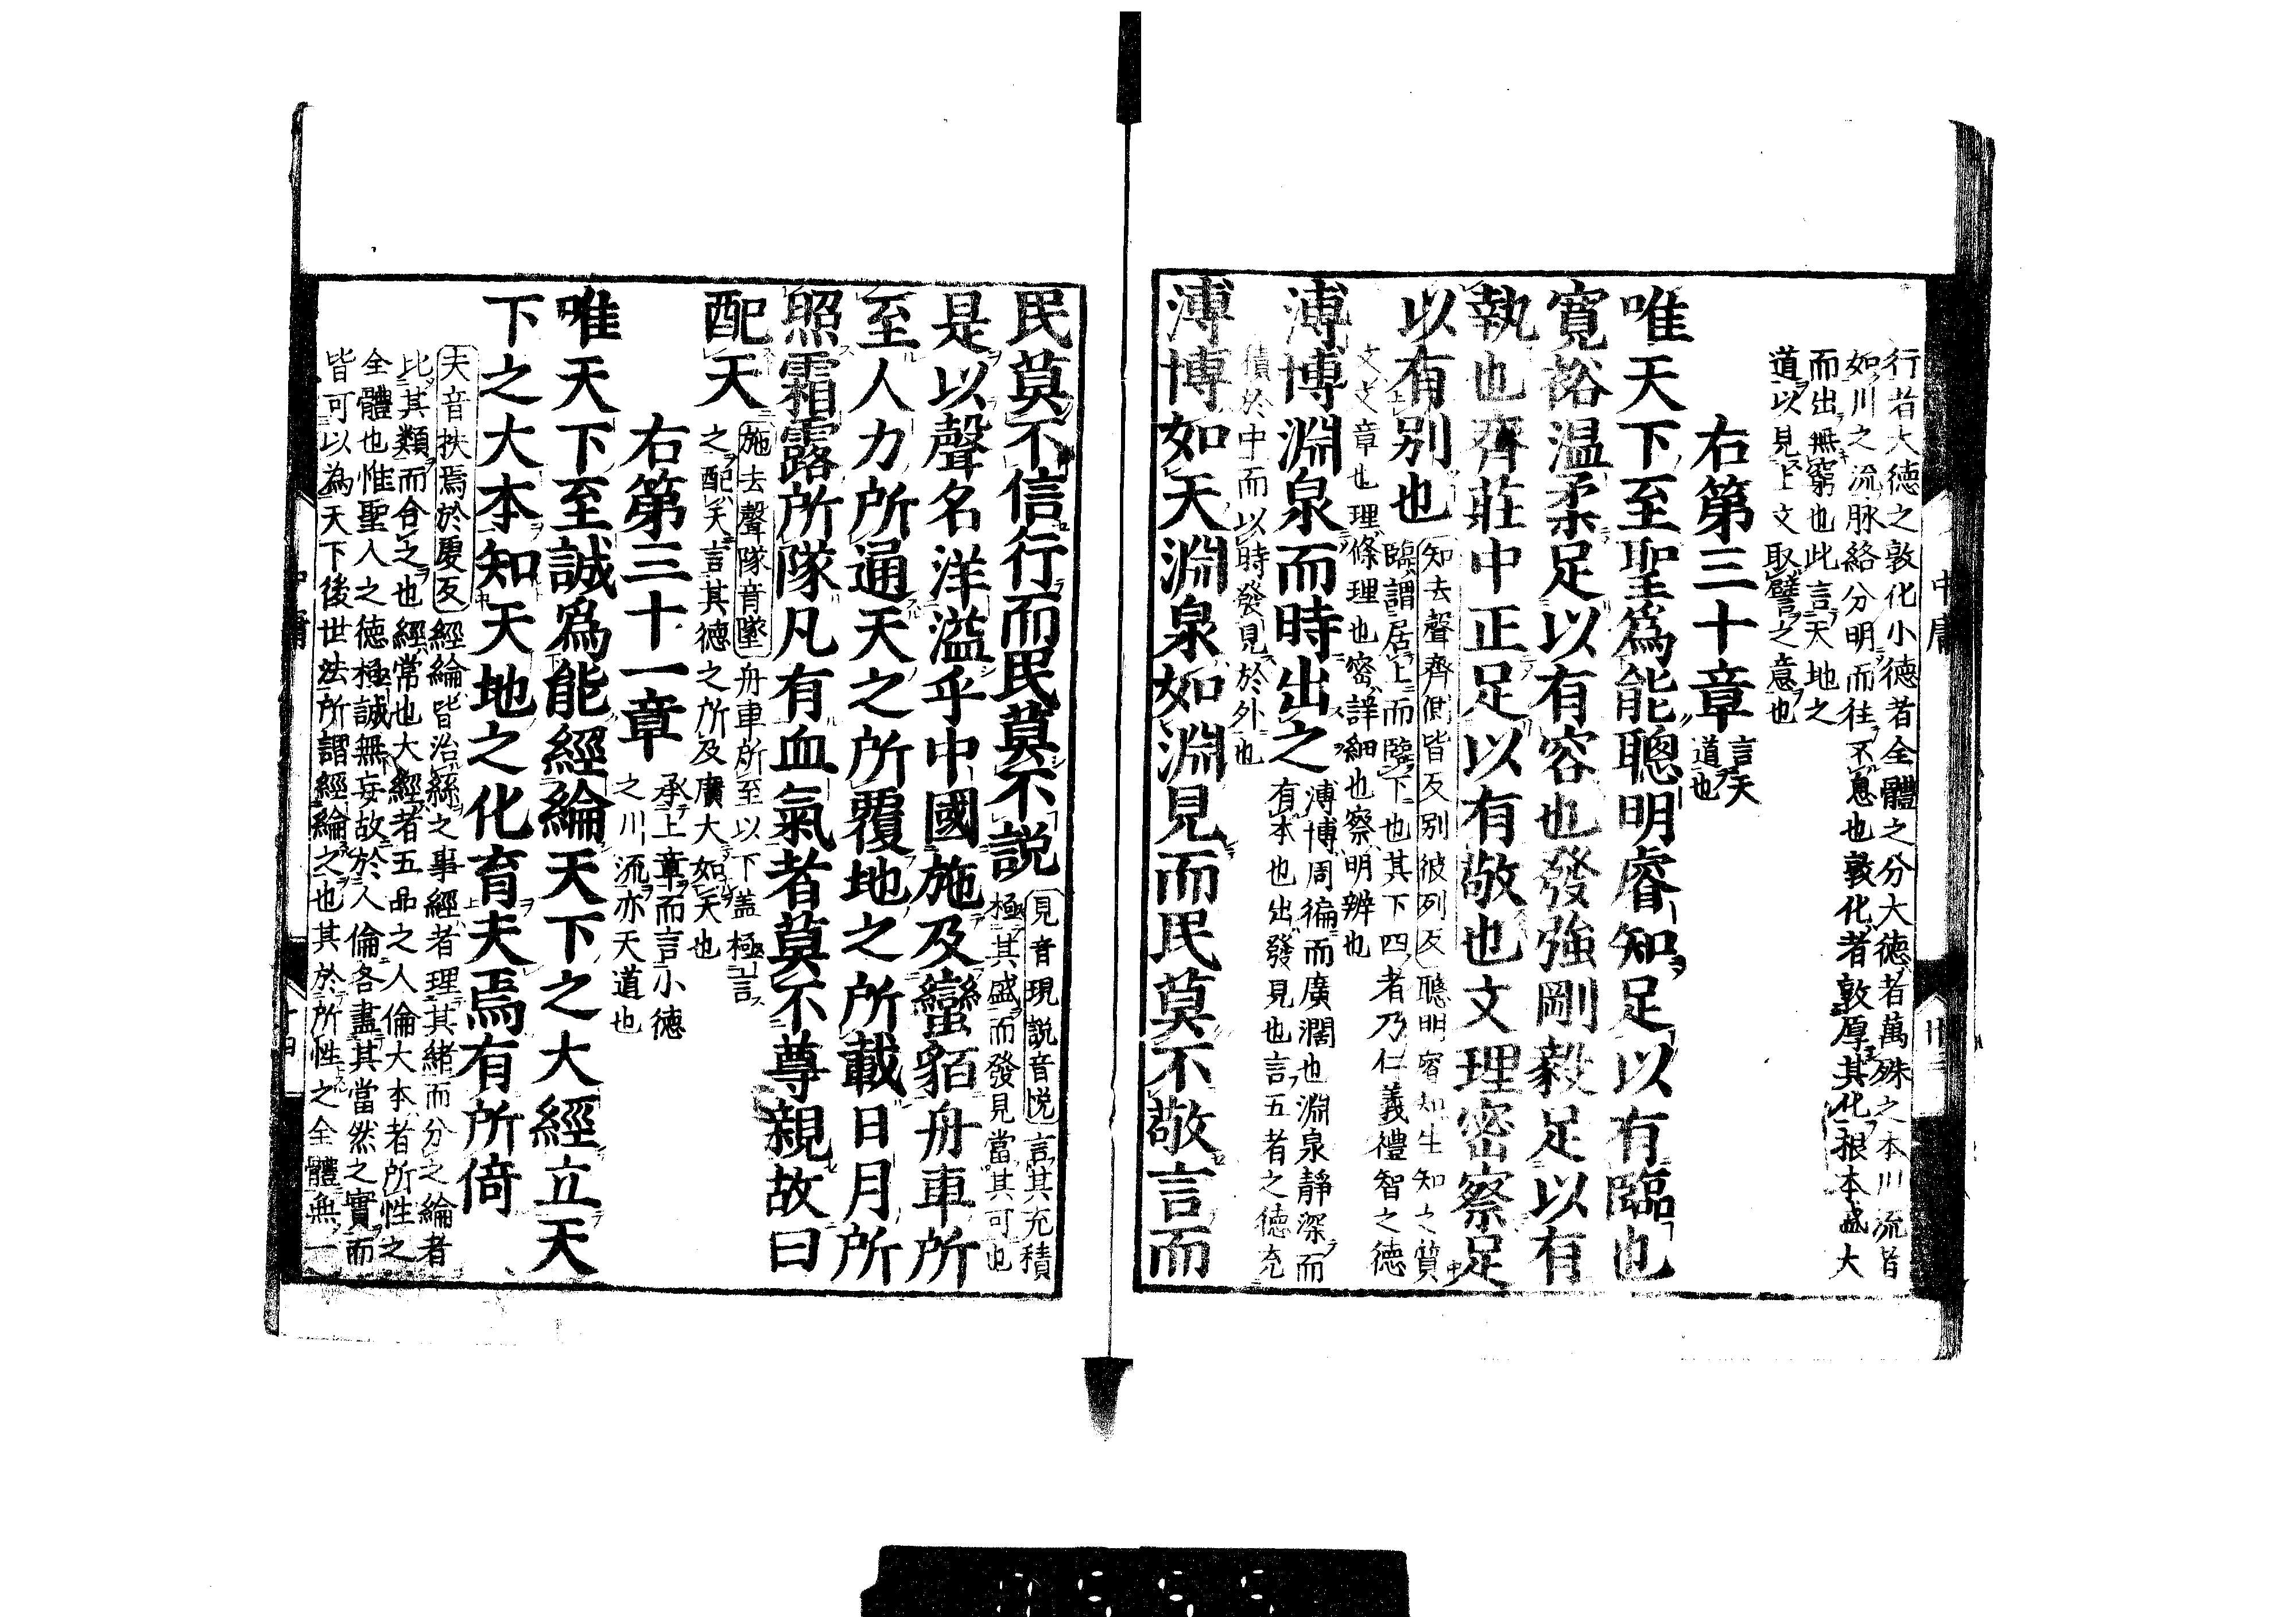 行者大德之敦化小德者全體之分大德者萬殊之本川流者
如川之流脉絡分明而往不息也敦化者敦厚其化根本盛大
而出無窮也此言天地之
道以見上文取譬之意也
右第三十章言天
道也
唯天下至聖爲能聰明睿知足以有臨也
寬裕温柔足以有容也發強剛毅足以有
執也齊莊中正足以有敬也文理密察足
以有別也
知去聲齊側皆反別彼列反聰明睿知生知之質
臨謂居上而臨下也其下四者乃仁義禮智之德
文文章也理條理也密詳細也察明辨也
溥博淵泉而時出之
溥博周徧而廣濶也淵泉靜深而
有本也出發見也言五者之德充
積於中而以時發見於外也
溥博如天淵泉如淵見而民莫不敬言而
民莫不信行而民莫不説
見音現説音悦言其充積
極其盛而發見當其可也
是以聲名洋溢乎中國施及蠻貊舟車所
至人力所通天之所覆地之所載日月所
照霜露所隊凡有血氣者莫不尊親故曰
配天
施去聲隊音墜舟車所至以下盖極言
之配天言其德之所及廣大如天也
右第三十一章
承上章而言小德
之川流亦天道也
唯天下至誠爲能經綸天下之大經立天
下之大本知天地之化育夫焉有所倚
夫音扶焉於虔反經綸皆治絲之事經者理其緒而分之綸者
比其類而合之也經常也大經者五品之人倫大本者所性之
全體也惟聖人之德極誠無妄故於人倫各盡其當然之實而
皆可以為天下後世法所謂經綸之也其於所性之全體無一
中庸